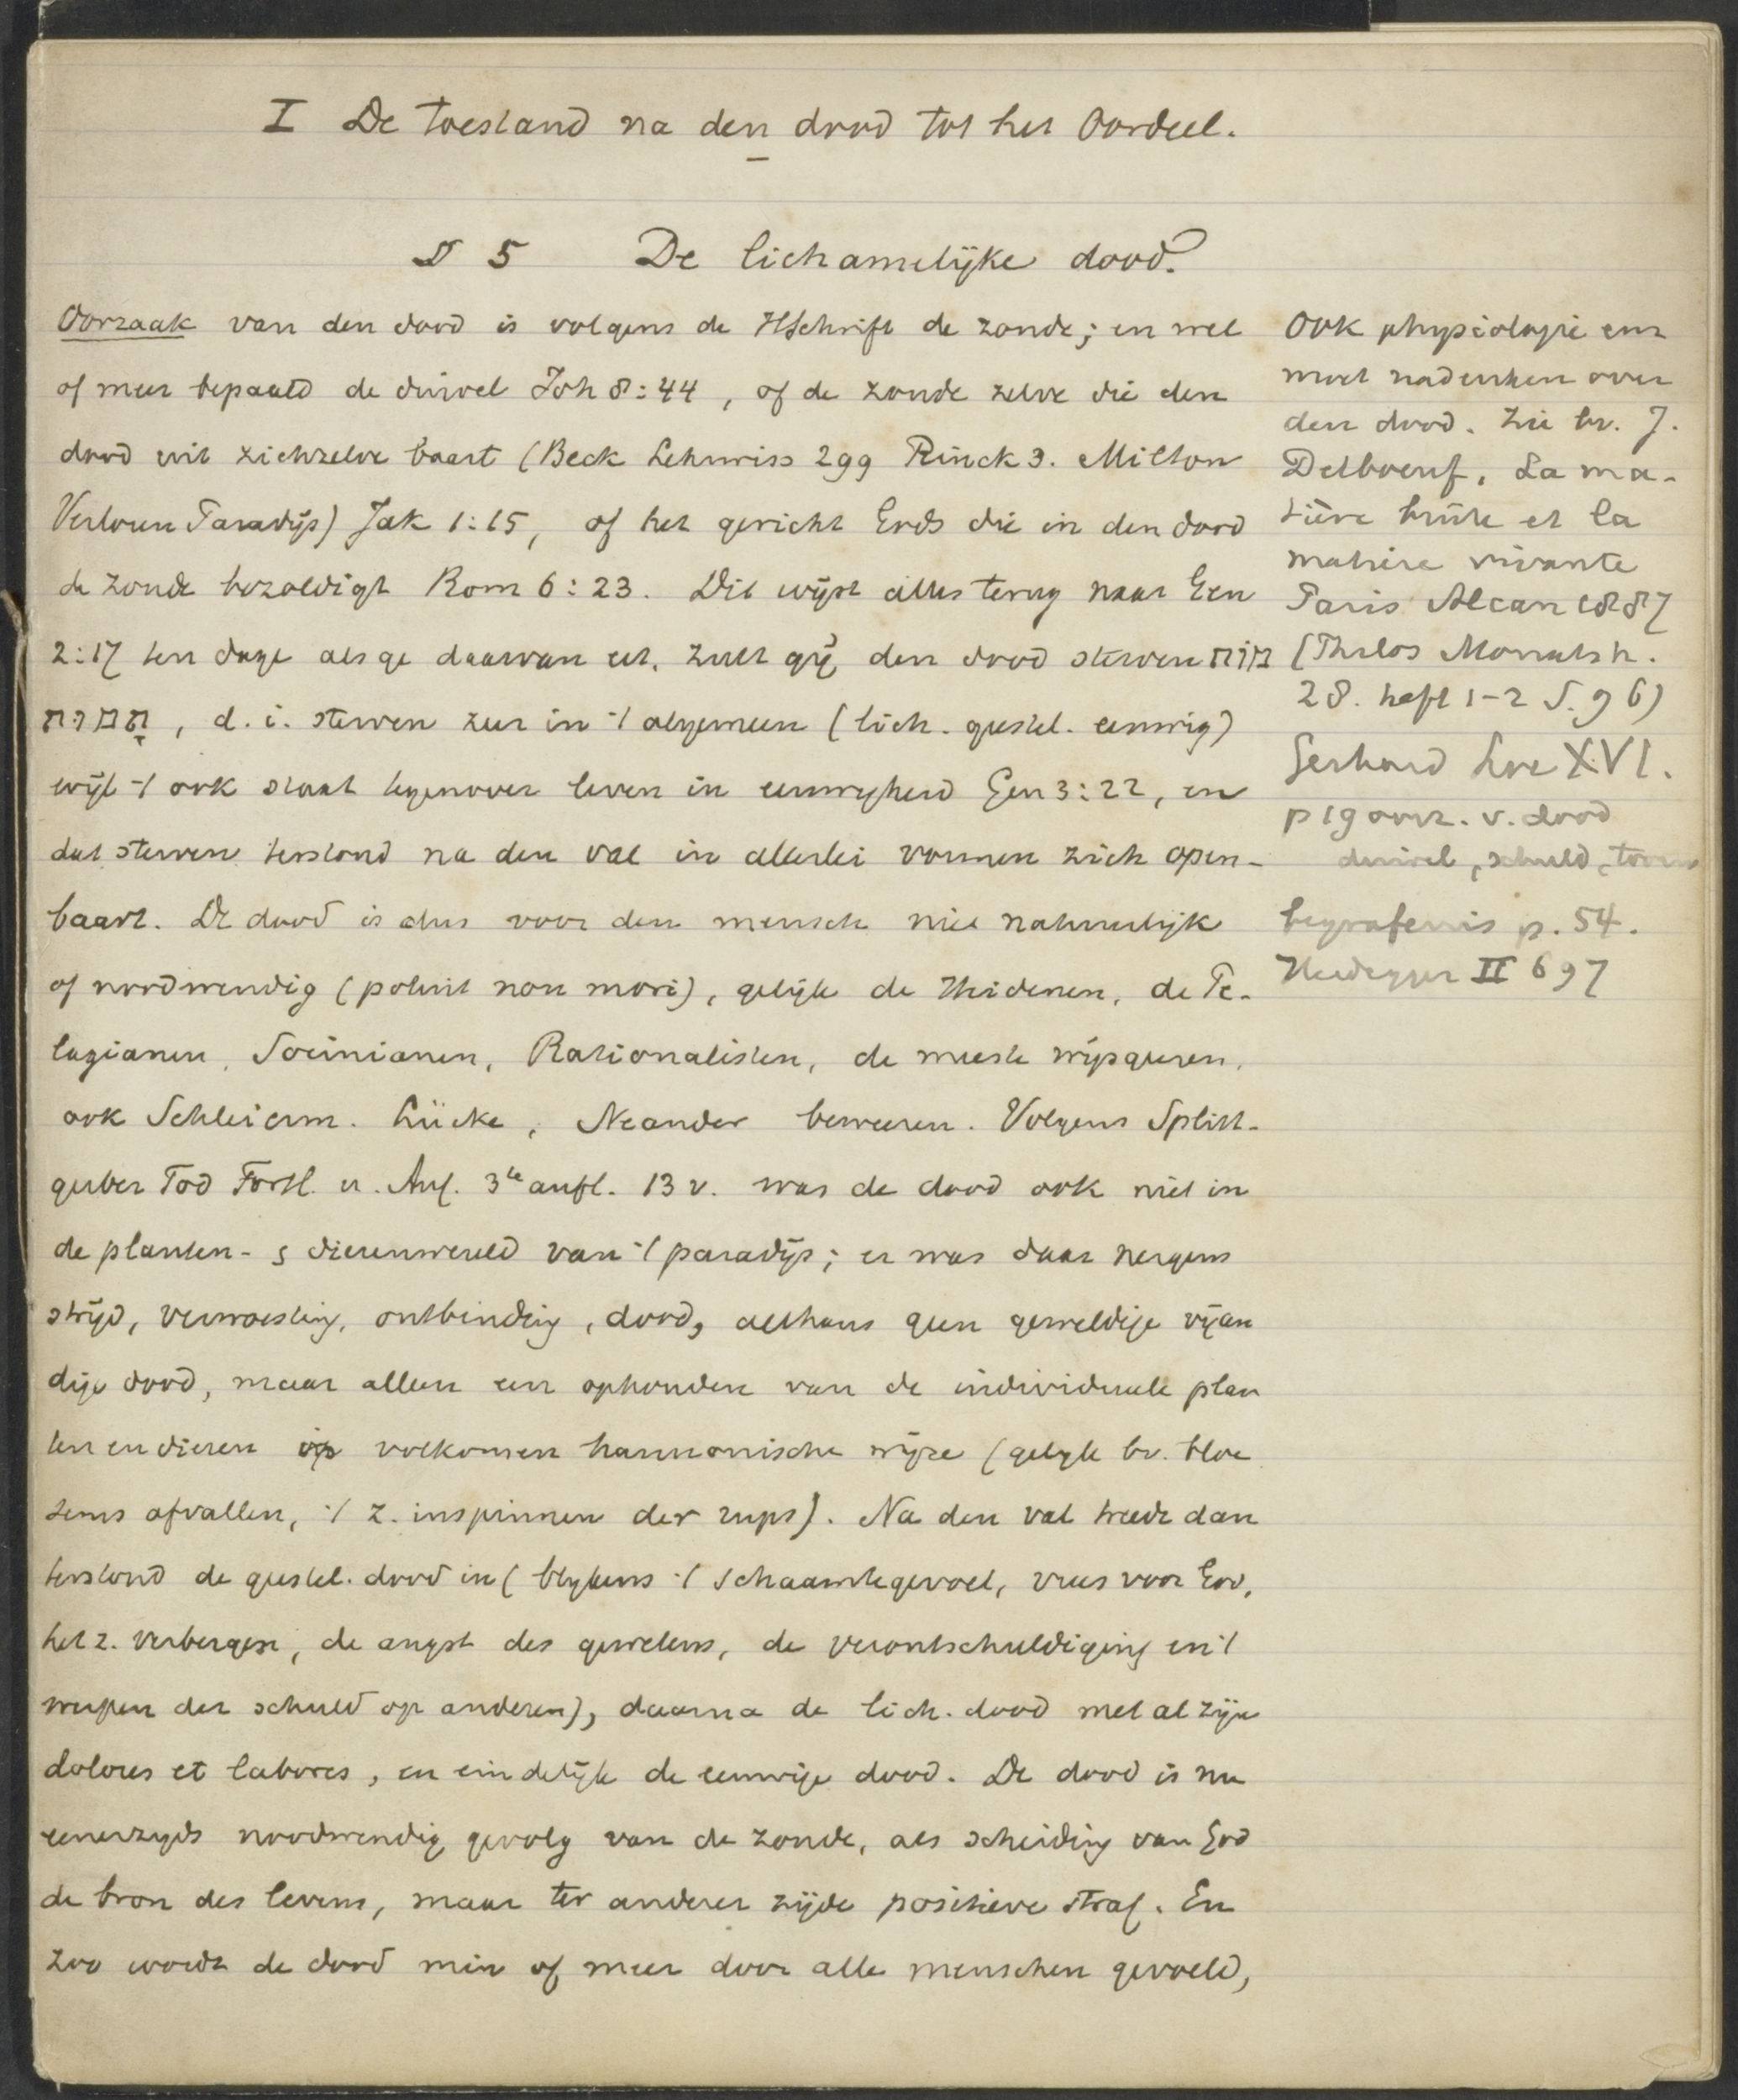 I De toestand na den dood tot het Oordeel.
§ 5 De lichamelijke dood.
Oorzaak van den dood is volgens de HSchrift de zonde; en wel
of meer bepaald de duivel Joh 8:44, of de zonde zelve die den
dood uit zichzelve baart (Beck Lehrwiss 299 Rinck 3. Milton
Verloren Paradijs) Jak 1:15, of het gericht Gods die in den dood
de zonde bezoldigt Rom 6:23. Dit wijst alles terug naar Gen
2:17 ten dage als ge daarvan eet, zult gij den dood sterven מות
תמות, d.i. sterven zeer in 't algemeen (lich. geestel. eeuwig)
wijl 't ook staat tegenover leven in eeuwigheid Gen 3:22, en
dat sterven terstond na den val in allerlei vormen zich open-
baart. De dood is dus voor den mensch niet natuurlijk
of noodwendig (potuit non mori), gelijk de Heidenen, de Pe-
lagianen, Socinianen, Rationalisten, de meeste wijsgeeren,
ook Schleierm. Lücke, Neander beweren. Volgens Splitt-
gerber Tod Fortl. u. Auf. 3te aufl. 13 v. was de dood ook niet in
de planten- & dierenwereld van 't paradijs; er was daar nergens
strijd, verwoesting, ontbinding, dood, althans geen geweldige vijan
dige dood, maar alleen een ophouden van de individueele plan
ten en dieren op volkomen harmonische wijze (gelijk bv. bloe
sems afvallen, 't z. inspinnen der rups). Na den val treedt dan
terstond de geestel. dood in (blijkens 't schaamtegevoel, vrees voor God,
het z. verbergen, de angst des gewetens, de verontschuldiging en 't
werpen der schuld op anderen), daarna de lich. dood met al zijn
dolores et labores, en eindelijk de eeuwige dood. De dood is nu
eenerzijds noodwendig gevolg van de zonde, als scheiding van God
de bron des levens, maar ter anderer zijde positieve straf. En
zoo wordt de dood min of meer door alle menschen gevoeld,
Ook physiologie enz
moet nadenken over
den dood. Zie bv. J.
Delboeuf, La ma-
tière brute et la
matière vivante
Paris Alcan 1887
(Philos Monatsh.
28. heft 1-2 S. 96)
Gerhard Loc XVI.
p 19 oorz. v. dood
duivel, schuld, toorn
begrafenis p. 54.
Heidegger II 697